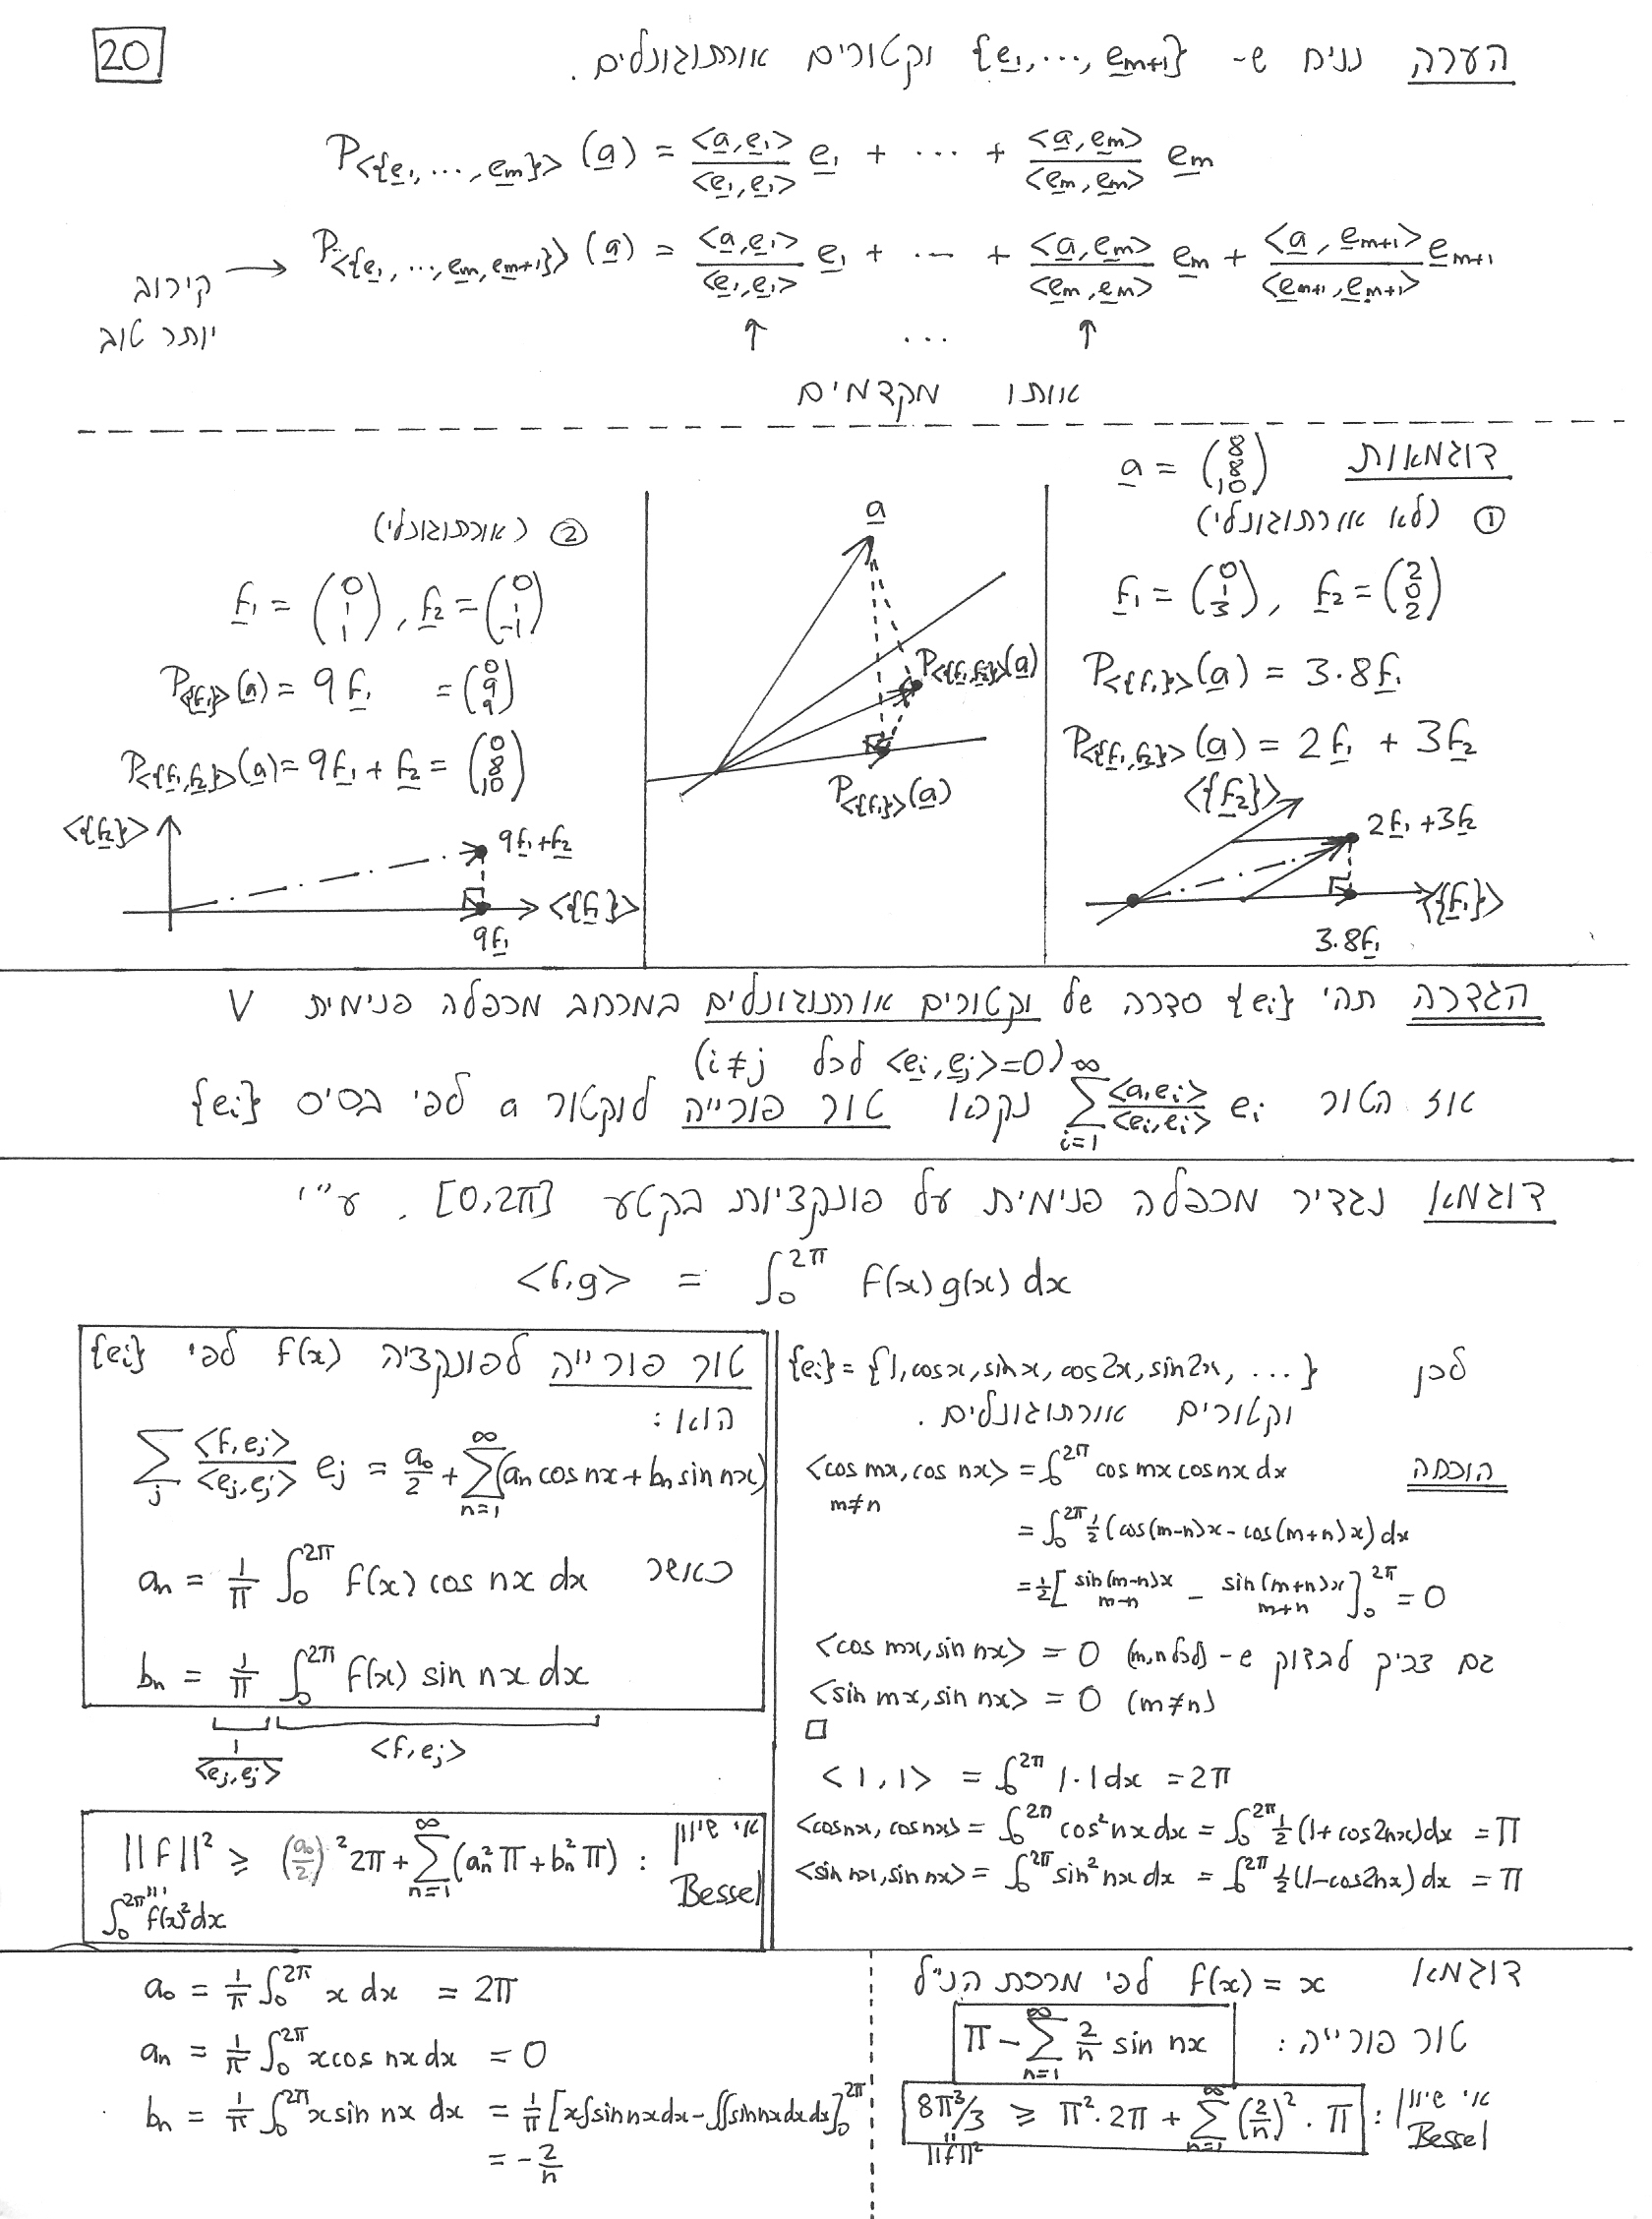 20
הערה נניח ש- {e₁,…,eₘ₊₁} וקטורים אורתוגונלים.
P<{e₁,…,eₘ}>(a) = <a,e₁>/<e₁,e₁> e₁ + ⋯ + <a,eₘ>/<eₘ,eₘ> eₘ
P<{e₁,…,eₘ,eₘ₊₁}>(a) = <a,e₁>/<e₁,e₁> e₁ + ⋯ + <a,eₘ>/<eₘ,eₘ> eₘ + <a,eₘ₊₁>/<eₘ₊₁,eₘ₊₁> eₘ₊₁
קירוב →
יותר טוב
↑ … ↑
אותו מקדמים
דוגמאות a = (8 8 10)
① (לא אורתוגונלי)
f₁ = (0 1 3), f₂ = (2 0 2)
P<{f₁}>(a) = 3.8f₁
P<{f₁,f₂}>(a) = 2f₁ + 3f₂
<{f₂}>
2f₁+3f₂
<{f₁}>
3.8f₁
a
P<{f₁,f₂}>(a)
P<{f₁}>(a)
② (אורתוגונלי)
f₁ = (0 1 1), f₂ = (0 -1 1)
P<{f₁}>(a) = 9f₁ = (0 9 9)
P<{f₁,f₂}>(a) = 9f₁ + f₂ = (0 8 10)
<{f₂}>
9f₁+f₂
<{f₁}>
9f₁
הגדרה תהי {eᵢ} סדרה של וקטורים אורתוגונלים במרחב מכפלה פנימית V
(i≠j לכל <eᵢ,eⱼ>=0)
אז הטור ∑ᵢ₌₁^∞ <a,eᵢ>/<eᵢ,eᵢ> eᵢ נקרא טור פורייה לוקטור a לפי בסיס {eᵢ}
דוגמא נגדיר מכפלה פנימית על פונקציות בקטע [0,2π] . ע"י
<f,g> = ∫₀^2π f(x)g(x)dx
לכן {eᵢ} = {1,cosx,sinx,cos2x,sin2x,…}
וקטורים אורתוגונלים.
הוכחה <cos mx,cos nx> = ∫₀^2π cos mx cos nx dx
m≠n
= ∫₀^2π ½(cos(m-n)x - cos(m+n)x)dx
= ½[sin(m-n)x/m-n - sin(m+n)x/m+n]₀^2π = 0
גם צריך לבדוק ש- <cos mx,sin nx> = 0 (לכל m,n)
<sin mx,sin nx> = 0 (m≠n)
□
<1,1> = ∫₀^2π 1·1dx = 2π
<cosnx,cosnx> = ∫₀^2π cos²nx dx = ∫₀^2π ½(1+cos2nx)dx = π
<sin nx,sin nx> = ∫₀^2π sin²nx dx = ∫₀^2π ½(1-cos2nx)dx = π
טור פורייה לפונקציה f(x) לפי {eᵢ}
הוא:
∑ⱼ <f,eⱼ>/<eⱼ,eⱼ> eⱼ = a₀/2 + ∑ₙ₌₁^∞(aₙcos nx + bₙsin nx)
כאשר aₙ = 1/π ∫₀^2π f(x) cos nx dx
bₙ = 1/π ∫₀^2π f(x) sin nx dx
1/<eⱼ,eⱼ> <f,eⱼ>
אי שיוון Bessel : ||f||² ≥ (a₀/2)²2π + ∑ₙ₌₁^∞(aₙ²π + bₙ²π)
∫₀^2π f(x)²dx
דוגמא f(x) = x לפי מרכת הנ"ל
טור פורייה: π - ∑ₙ₌₁^∞ 2/n sin nx
אי שיוון Bessel : 8π³/3 ≥ π²·2π + ∑ₙ₌₁^∞ (2/n)²·π
||f||²
a₀ = 1/π ∫₀^2π x dx = 2π
aₙ = 1/π ∫₀^2π xcos nx dx = 0
bₙ = 1/π ∫₀^2π xsin nx dx = 1/π [x∫sinnxdx - ∬sinnxdxdx]₀^2π
= -2/n